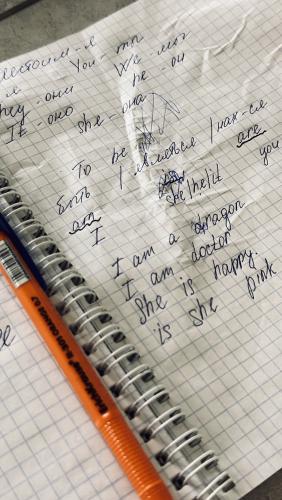 местоим-я
я You - ты We - мы
they - они he - он
It - оно she - она
To be
быть / являться / нах-ся
am she/he/it are
I you
I am a dragon
I am doctor
She is happy.
is she pink